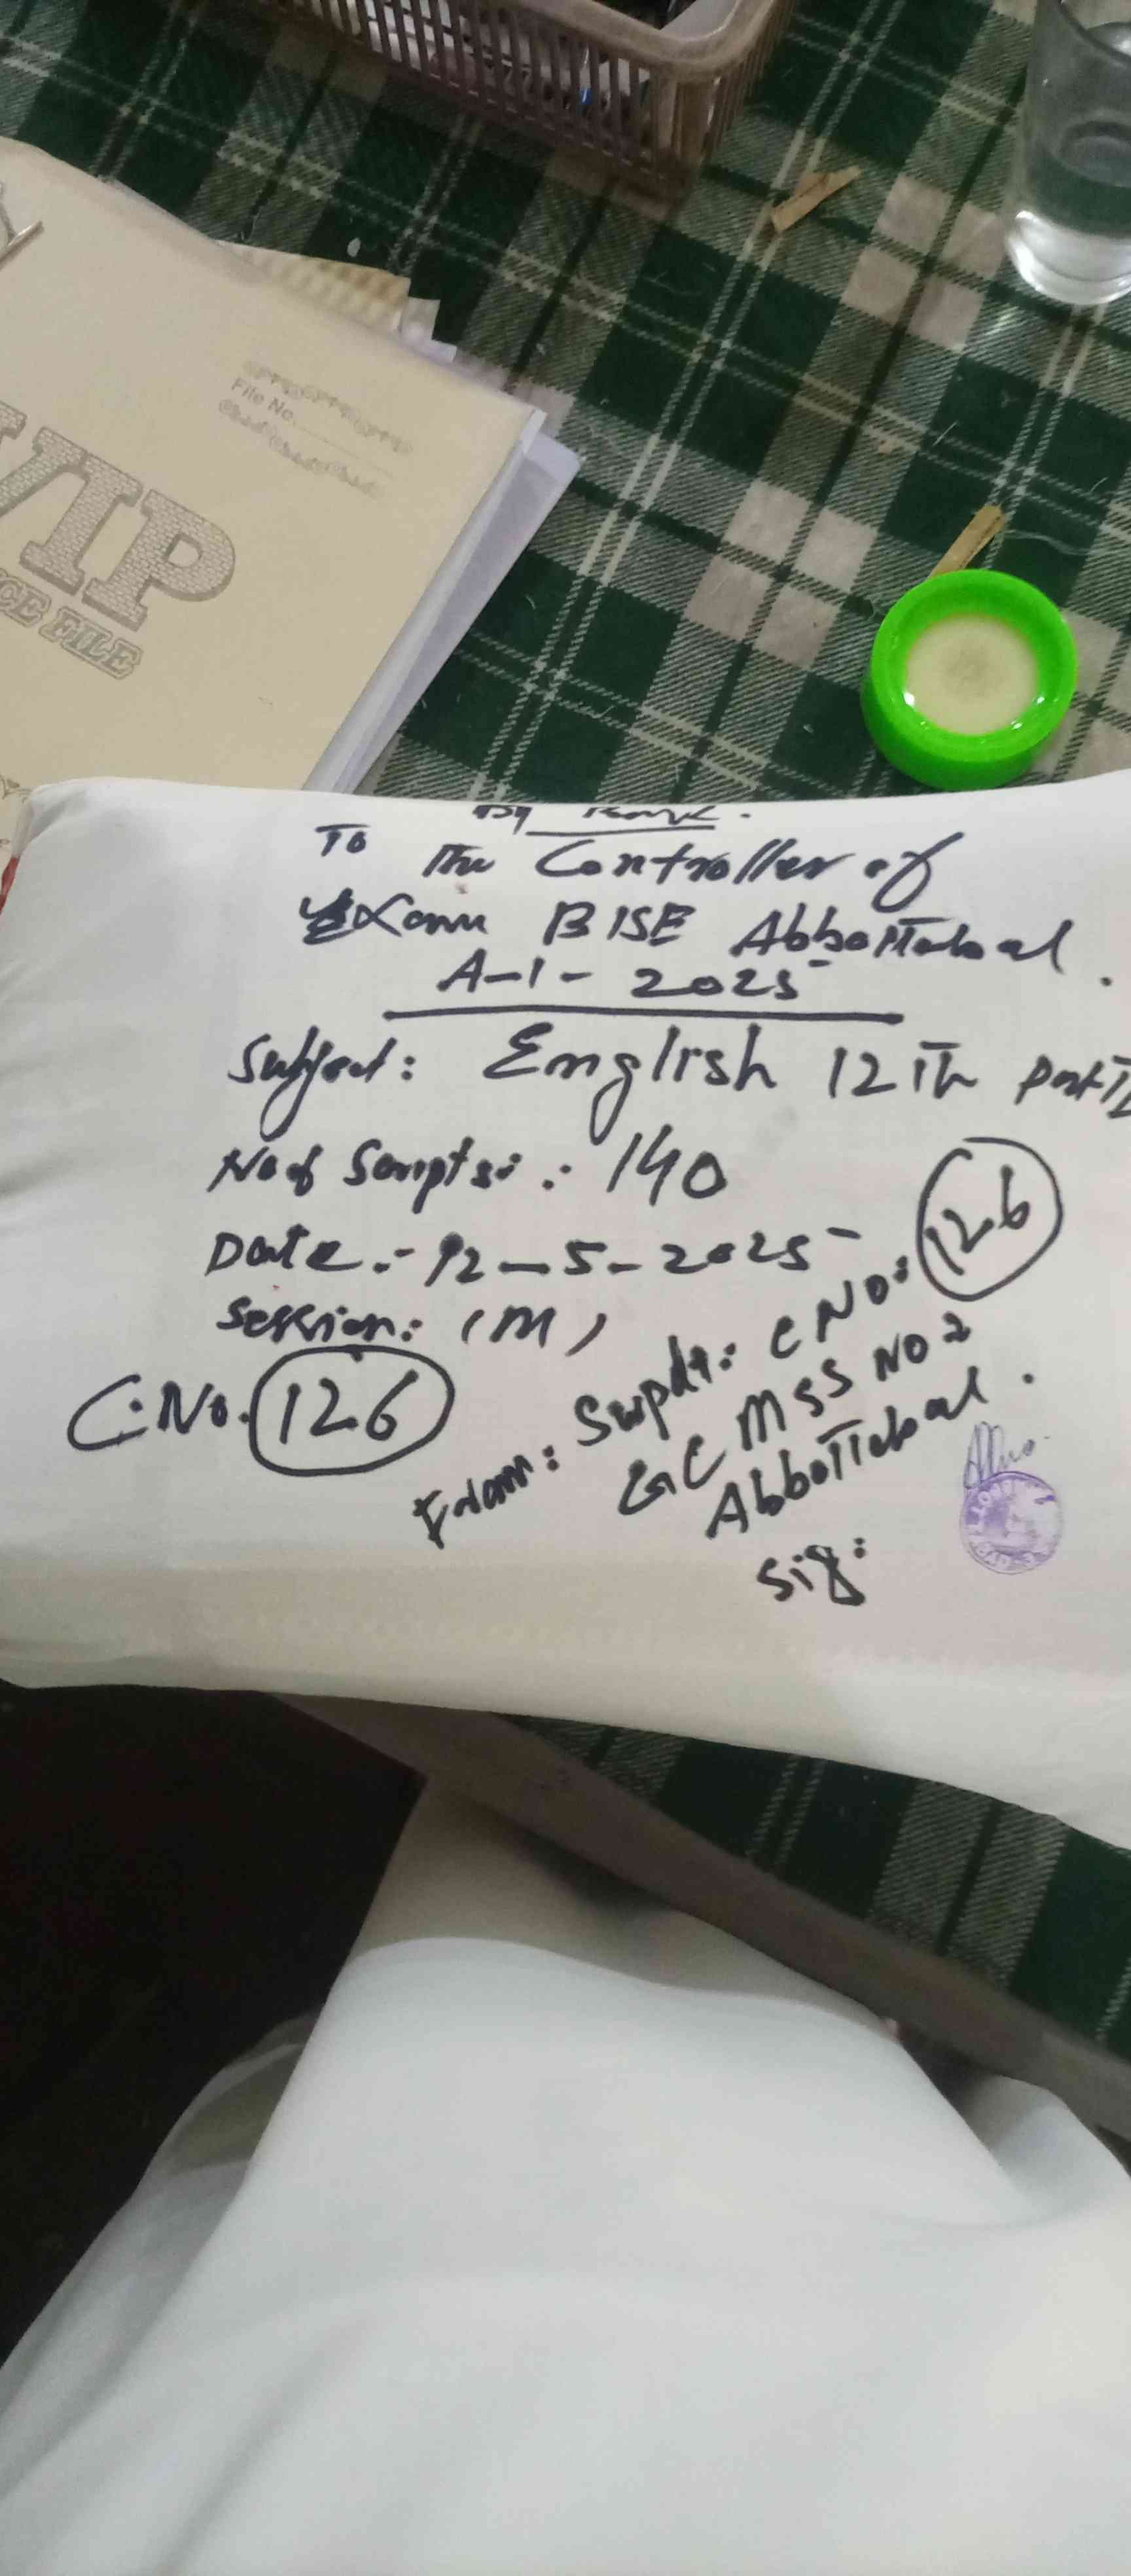 File No.
VIP
CE FILE
By Bank.
To The Controller of
Exam BISE Abbottabad.
A-1- 2025
Subject: English 12th part II
No of Scripts: 140
Date :- 12-5-2025
Session: (M)
C.No. 126
From: Supdt: C NO: 126
GCMSS NO 2
Abbottabad.
Sig: